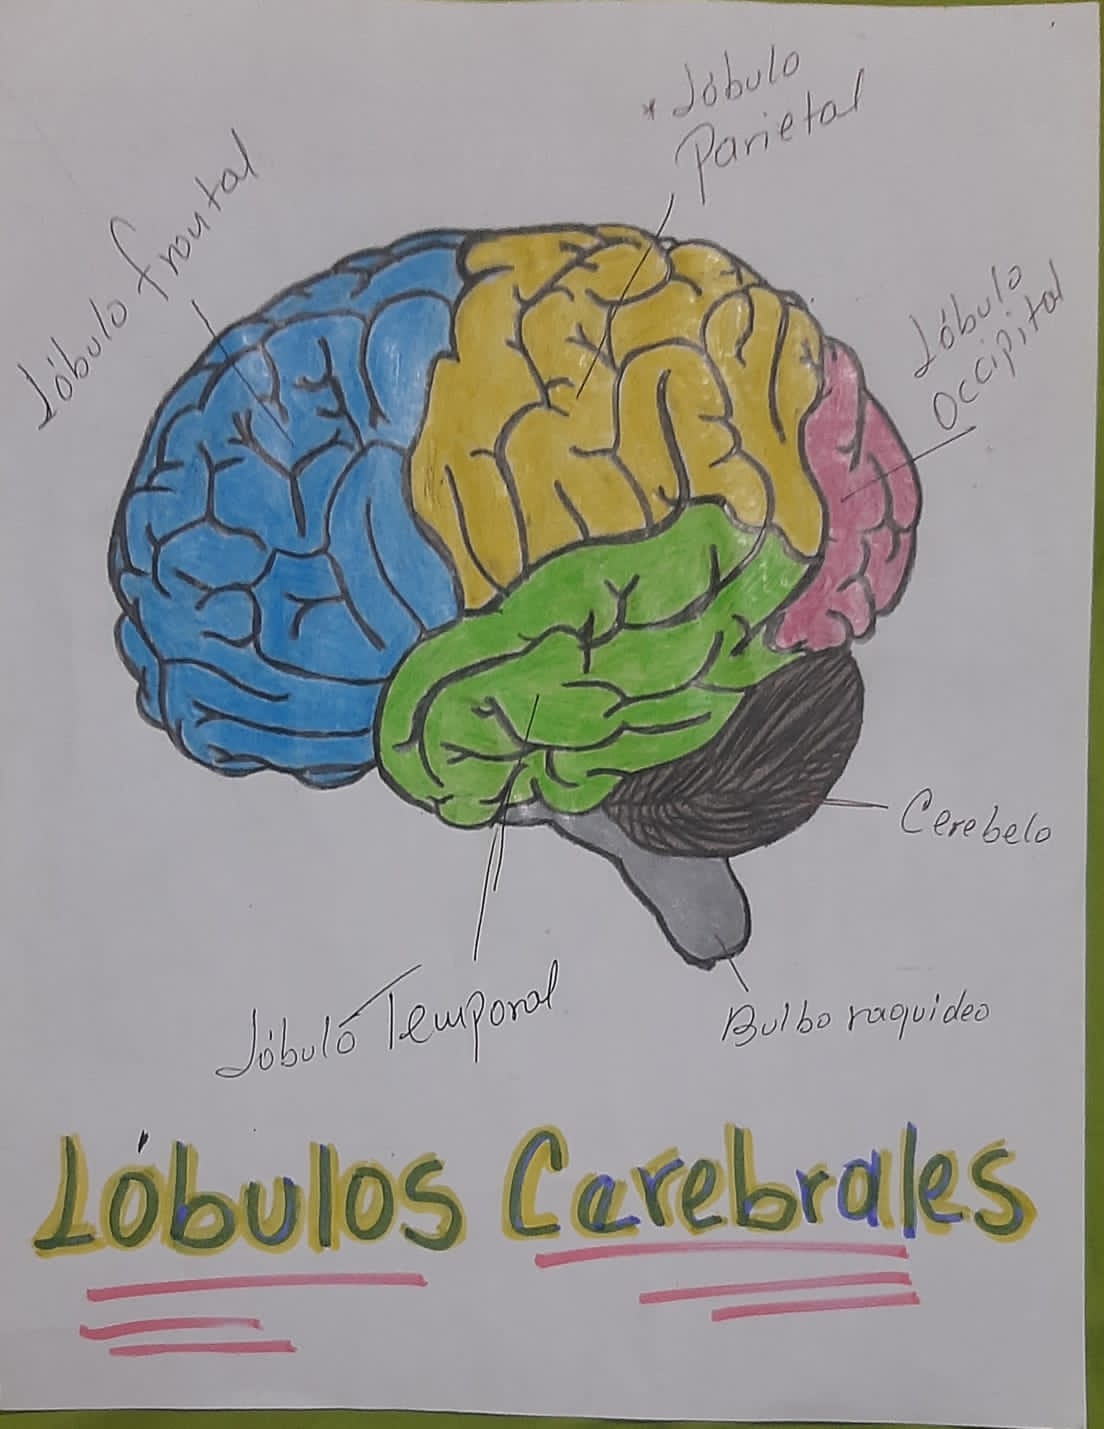 * Lóbulo
Parietal
Lóbulo frontal
Lóbulo
Occipital
Cerebelo
Lóbulo Temporal
Bulbo raquideo
Lóbulos Cerebrales